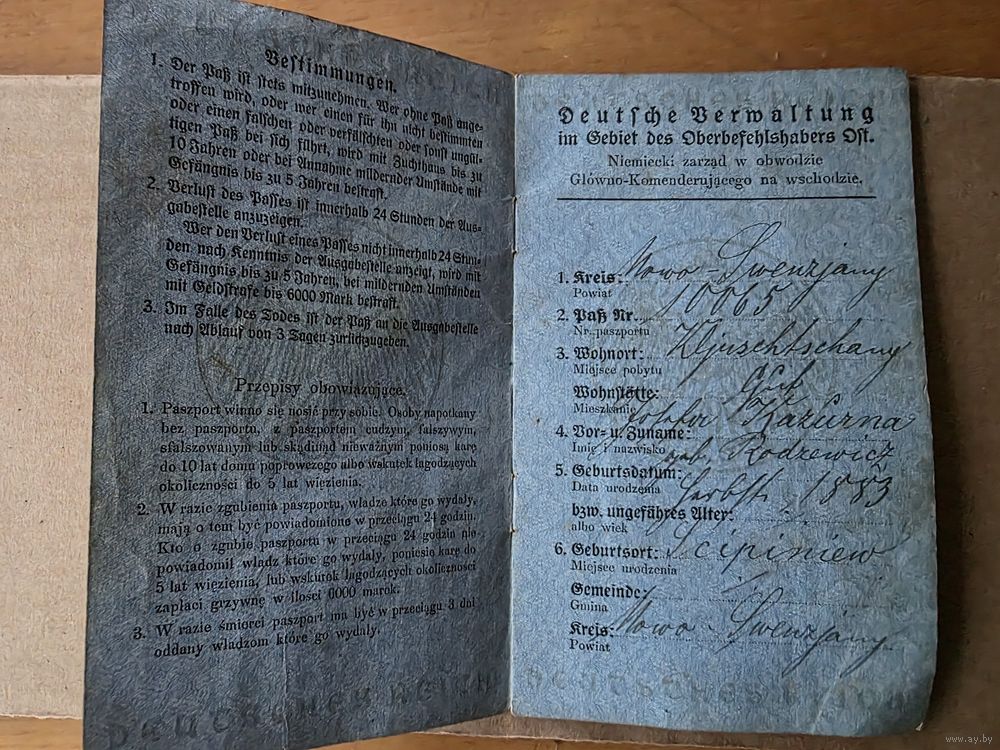 Bestimmungen.
1. Der Paß ist stets mitzunehmen. Wer ohne Paß ange-
troffen wird, oder wer einen für ihn nicht bestimmten
oder einen falschen oder verfälschten oder sonst ungül-
tigen Paß bei sich führt, wird mit Zuchthaus bis zu
10 Jahren oder bei Annahme mildernder Umstände mit
Gefängnis bis zu 5 Jahren bestraft.
2. Verlust des Passes ist innerhalb 24 Stunden der Aus-
gabestelle anzuzeigen.
Wer den Verlust eines Passes nicht innerhalb 24 Stun-
den nach Kenntnis der Ausgabestelle anzeigt, wird mit
Gefängnis bis zu 5 Jahren, bei mildernden Umständen
mit Geldstrafe bis 6000 Mark bestraft.
3. Im Falle des Todes ist der Paß an die Ausgabestelle
nach Ablauf von 3 Tagen zurückzugeben.
Przepisy obowiązujące.
1. Paszport winno się nosić przy sobie. Osoby napotkany
bez paszportu, z paszportem cudzym, falszywym,
sfalszowanym lub skądinąd nieważnym poniosą karę
do 10 lat domu poprowezego albo wskutek łagodzących
okoliczności do 5 lat więzienia.
2. W razie zgubienia paszportu, władze które go wydały,
mają o tem być powiadomione w przeciągu 24 godzin.
Kto o zgubie paszportu w przeciągu 24 godzin nie
powiadomił władz które go wydały, poniesie karę do
5 lat więzienia, lub wskutek łagodzących okoliczności
zapłaci grzywnę w ilości 6000 marok.
3. W razie śmierci paszport ma być w przeciągu 3 dni
oddany władzom które go wydały.
Deutsche Verwaltung
im Gebiet des Oberbefehlshabers Ost.
Niemiecki zarząd w obwodzie
Główno-Komenderującego na wschodzie.
1. Kreis: Nowo-Swenzjany
Powiat
2. Paß Nr. 10065
Nr. paszportu
3. Wohnort:
Miejsce pobytu
Wohnstätte:
Mieszkanie
4. Vor- u. Zuname: Kazurna
Imię i nazwisko geb. Rodzewicz
5. Geburtsdatum: Herbst 1883
Data urodzenia
bzw. ungefähres Alter:
albo wiek
6. Geburtsort: Scipiniew
Miejsce urodzenia
Gemeinde:
Gmina
Kreis: Nowo-Swenzjany
Powiat
www.ay.by